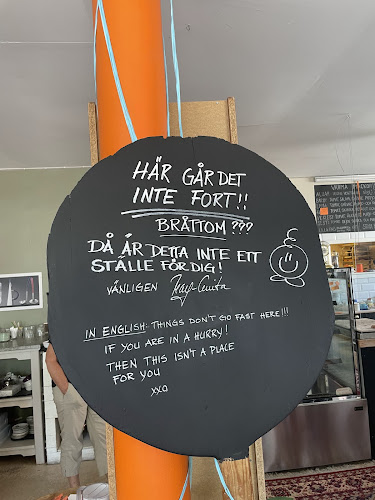 HÄR GÅR DET
INTE FORT!!
BRÅTTOM???
DÅ ÄR DETTA INTE ETT
STÄLLE FÖR DIG!
VÄNLIGEN
IN ENGLISH: THINGS DON'T GO FAST HERE!!!
IF YOU ARE IN A HURRY!
THEN THIS ISN'T A PLACE
FOR YOU
XXO
VARMA